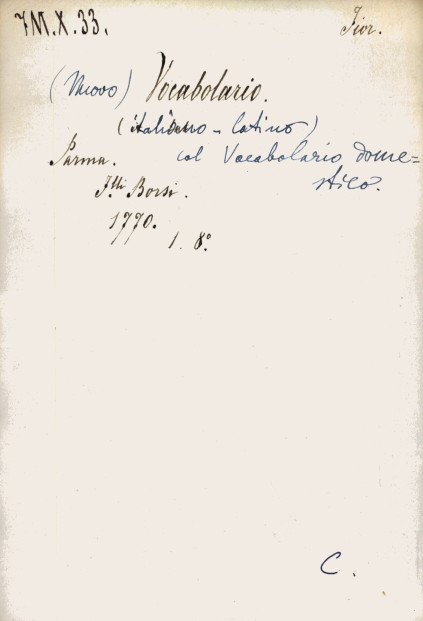 7M.X.33. Fior.
(Nuovo) Vocabolario.
(italiano - latino)
Parma. col Vocabolario dome=
stico.
F.lli Borsi.
1770.
1. 8°
C.